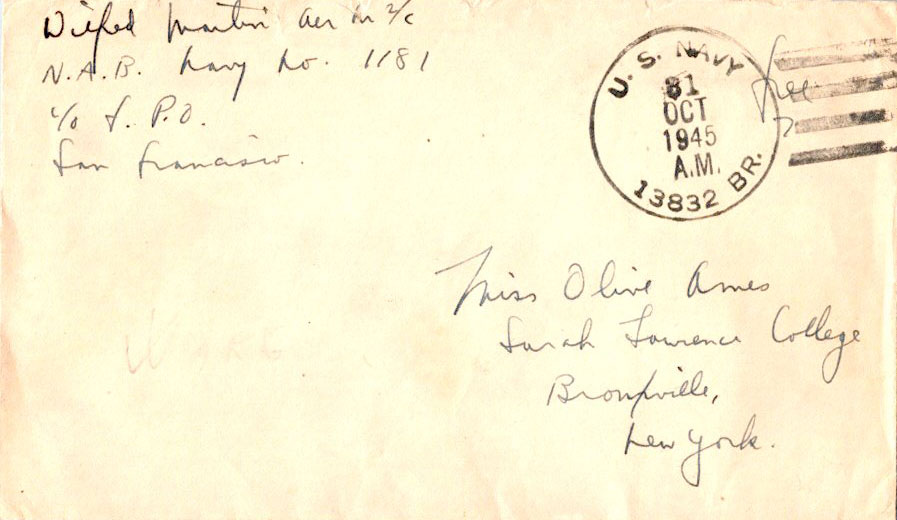 Wilfred Martin Aer M 2/c
N.A.B. Navy No. 1181
c/o F. P.O.
San Francisco.
U. S. NAVY
31
OCT
1945
A.M.
13832 BR.
free
Miss Olive Ames
Sarah Lawrence College
Bronxville,
New York.